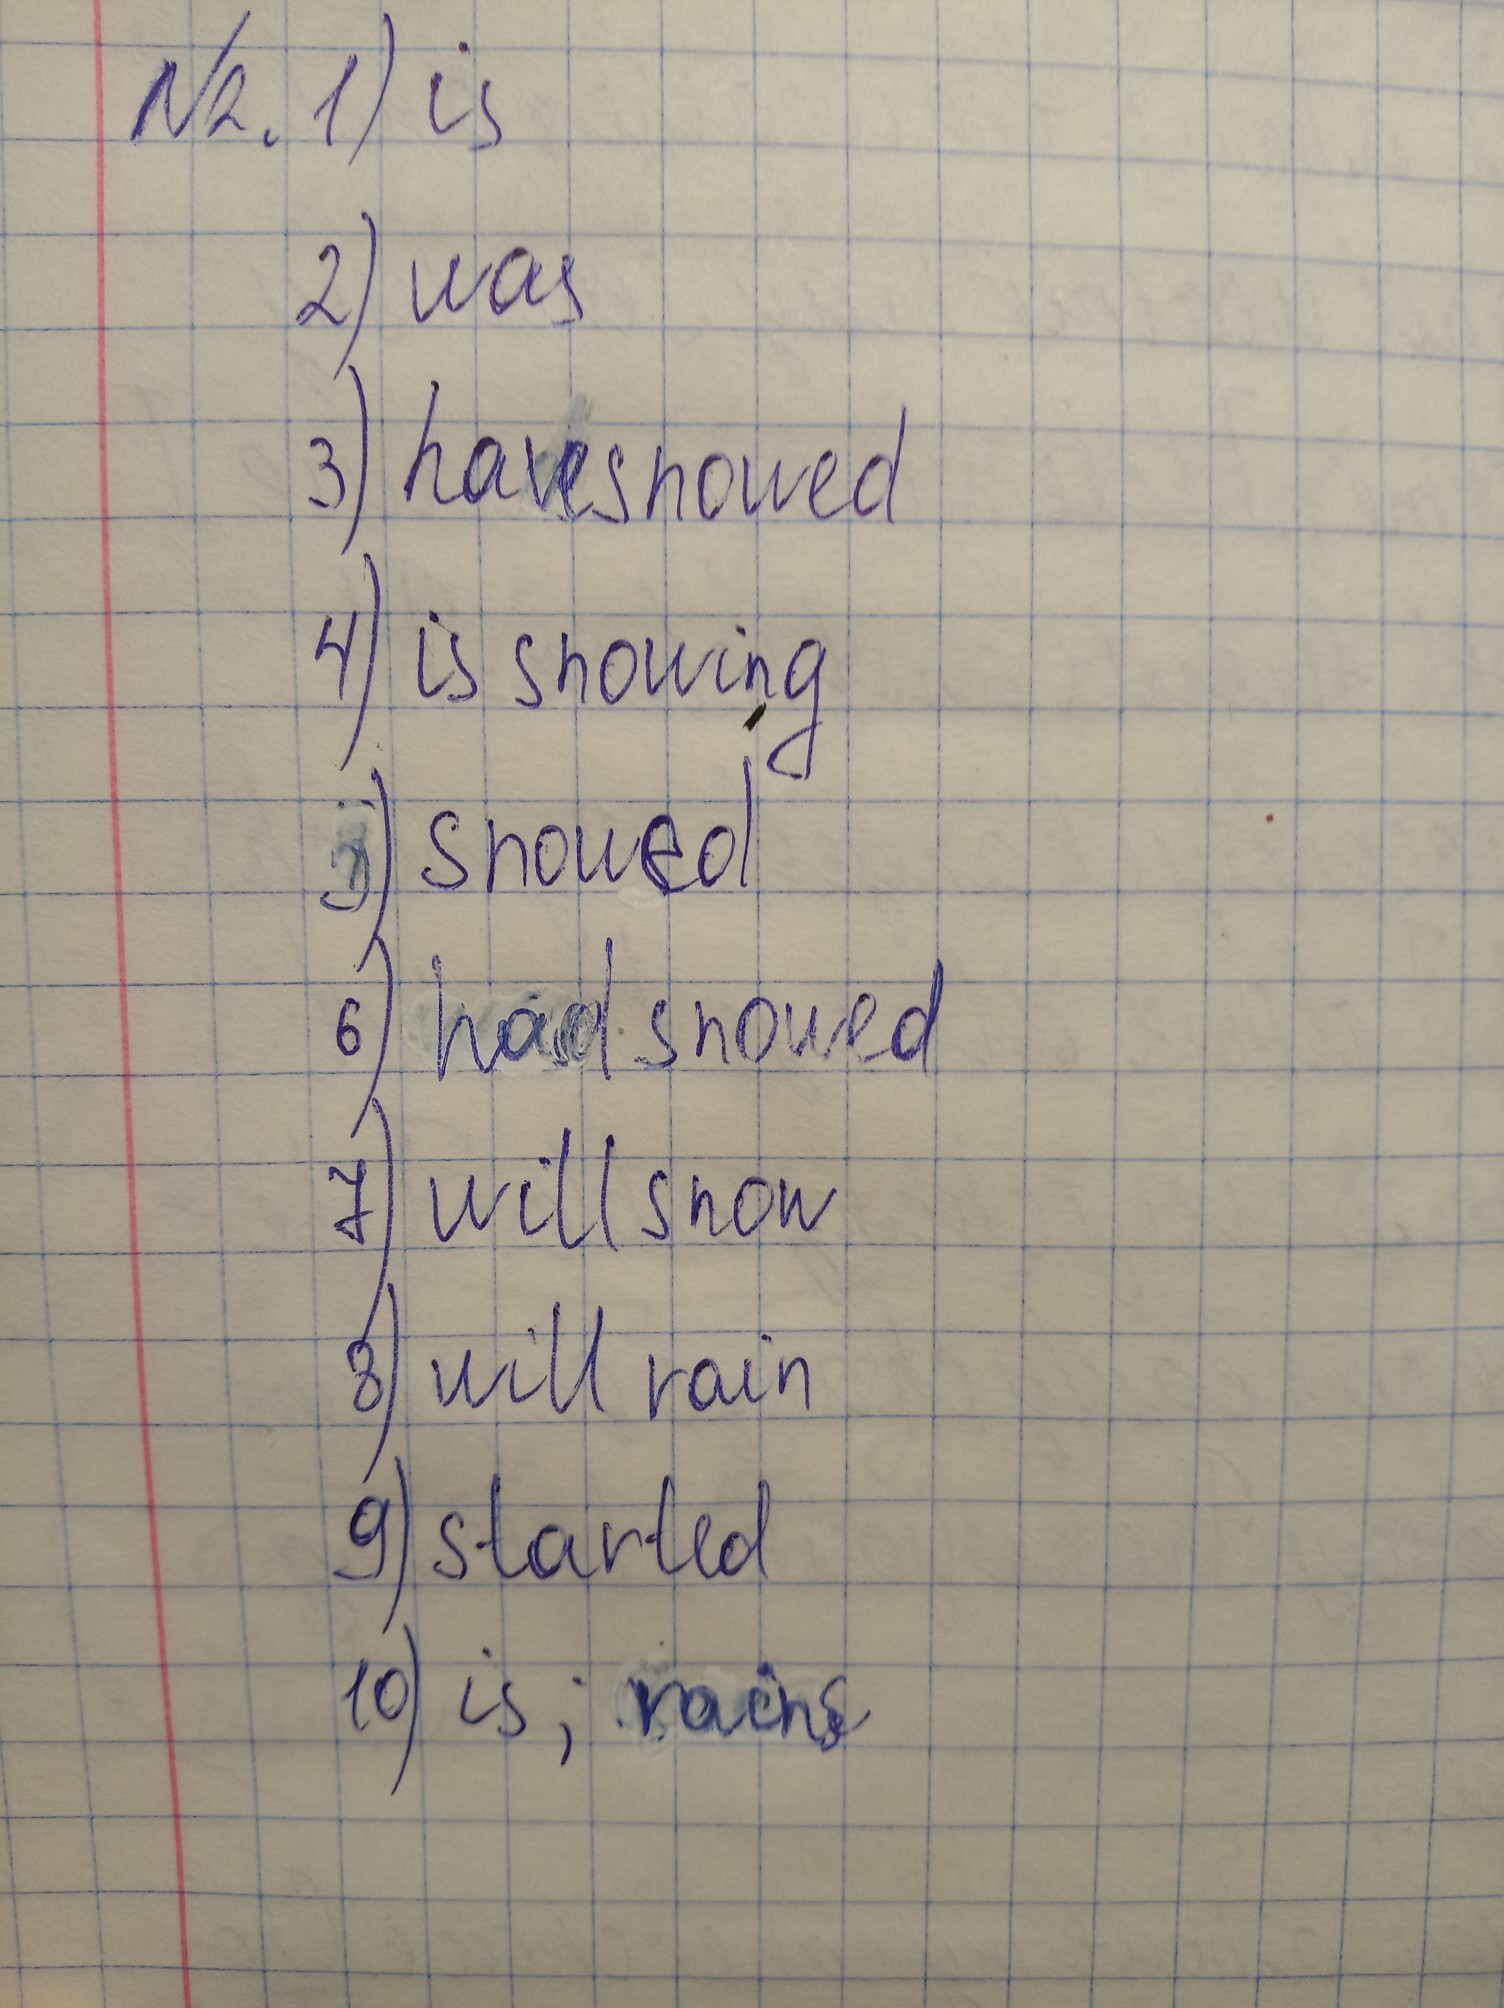 N2. 1) is
2) was
3) have snowed
4) is snowing
5) snowed
6) had snowed
7) will snow
8) will rain
9) started
10) is; rains